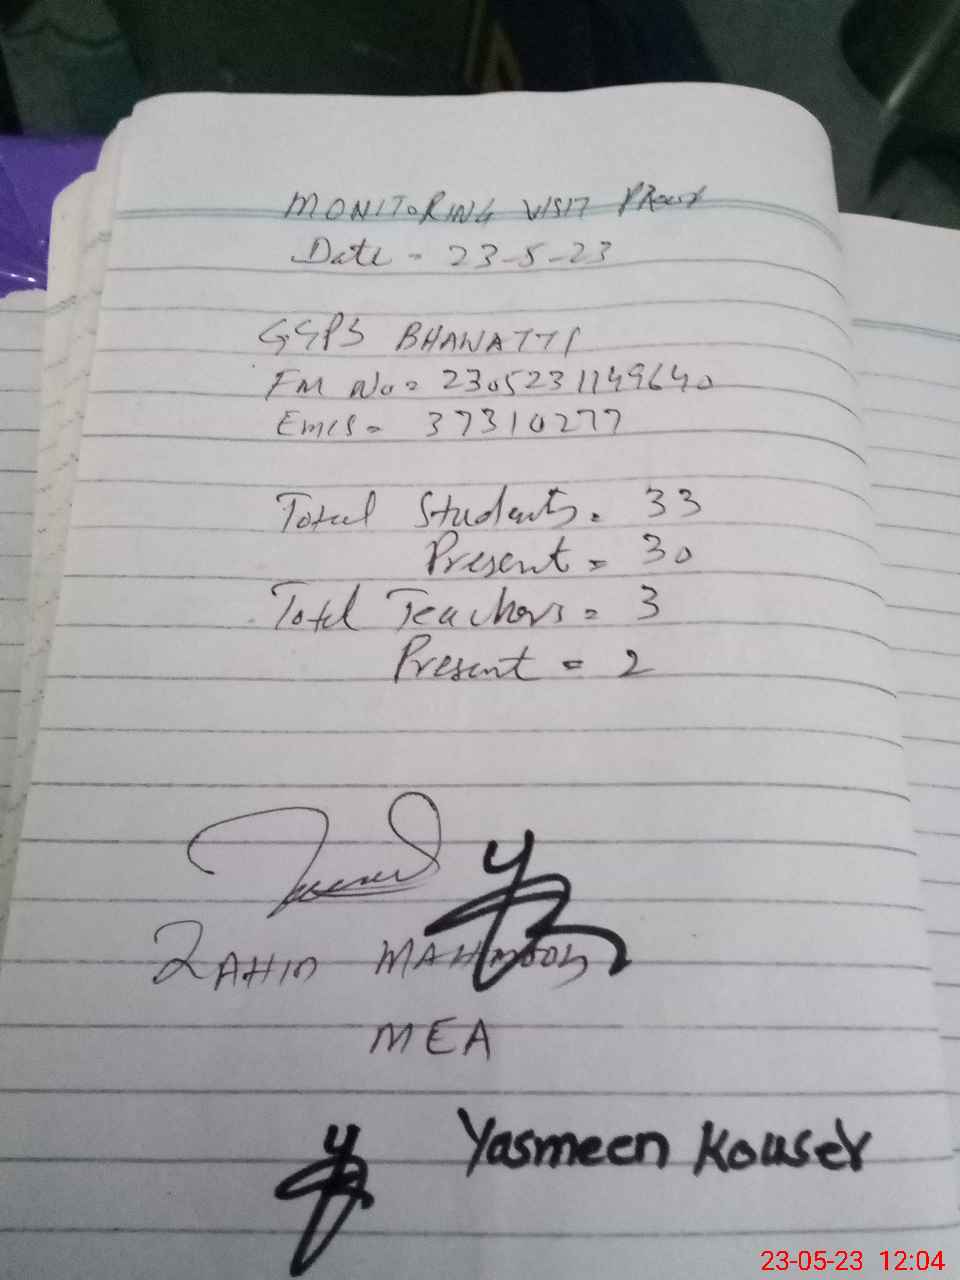 MONITORING VISIT PROOF
Date - 23-5-23
GGPS BHAWATTI
FM No = 2305231149640
Emis = 37310277
Total Students = 33
Present = 30
Total Teachers = 3
Present = 2
ZAHID MAHMOOD
MEA
Yasmeen Kouser
23-05-23 12:04